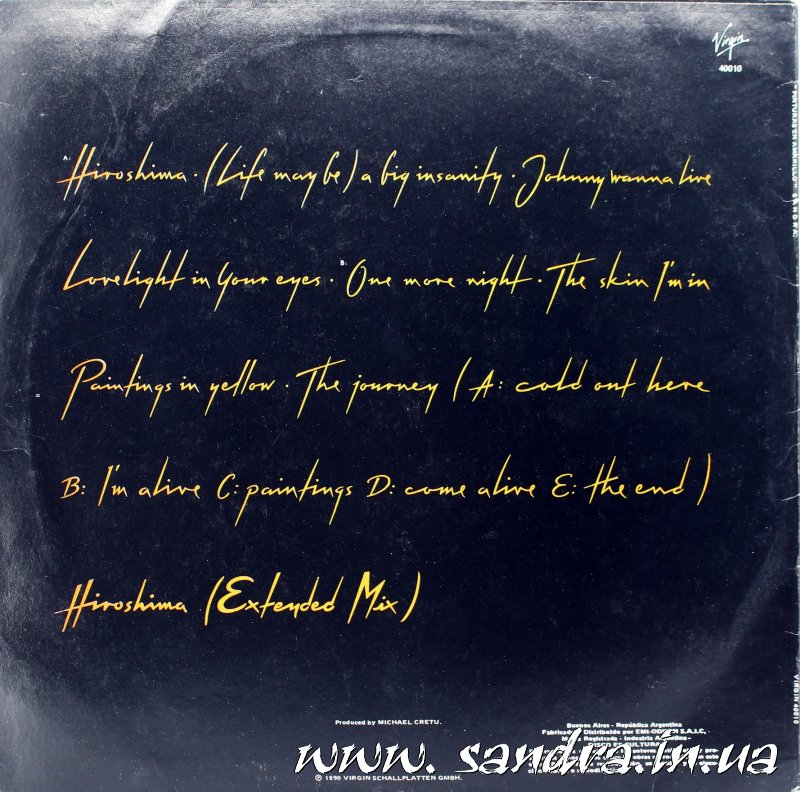 Virgin
40010
A: Hiroshima · (Life may be) a big insanity · Johnny wanna live
Lovelight in your eyes · B: One more night · The skin I'm in
Paintings in yellow · The journey (A: cold out here
B: I'm alive C: paintings D: come alive E: the end)
Hiroshima (Extended Mix)
Produced by MICHAEL CRETU.
℗ 1990 VIRGIN SCHALLPLATTEN GMBH.
Buenos Aires - República Argentina
Distribuido por S.A.I.C.,
Registrada - Industria Argentina -
www.sandra.in.ua
"PINTURAS EN AMARILLO" SANDRA
VIRGIN 40010